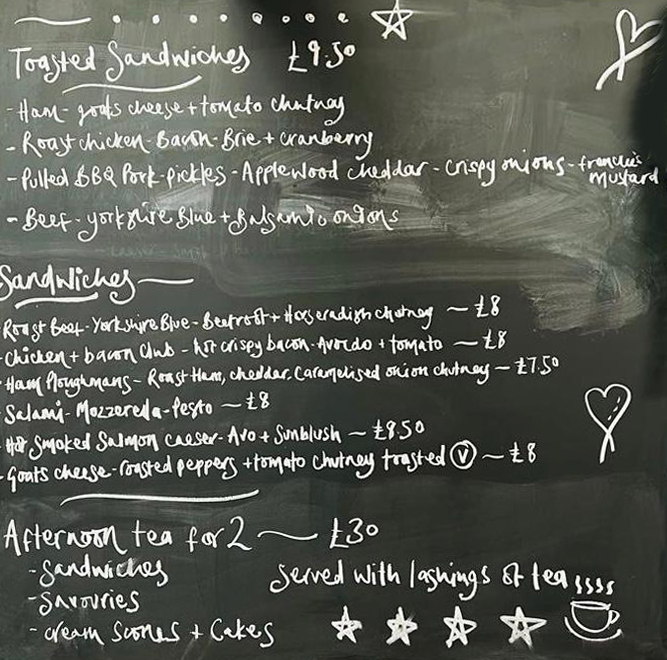 Toasted Sandwiches £9.50
- Ham - goats cheese + tomato chutney
- Roast chicken - Bacon - Brie + cranberry
- Pulled BBQ Pork - pickles - Applewood cheddar - crispy onions - frenchies mustard
- Beef - yorkshire Blue + Balsamic onions
Sandwiches
Roast Beef - Yorkshire Blue - Beetroot + Horseradish chutney - £8
- Chicken + bacon club - hot crispy bacon - Avocado + tomato - £8
- Ham Ploughmans - Roast Ham, cheddar, Caramelised onion chutney - £7.50
- Salami - Mozzerella - Pesto - £8
- Hot Smoked Salmon caeser - Avo + Sunblush - £8.50
- Goats cheese - roasted peppers + tomato chutney toasted V - £8
Afternoon tea for 2 - £30
- Sandwiches
- Savouries
- cream Scones + Cakes
Served with lashings of tea